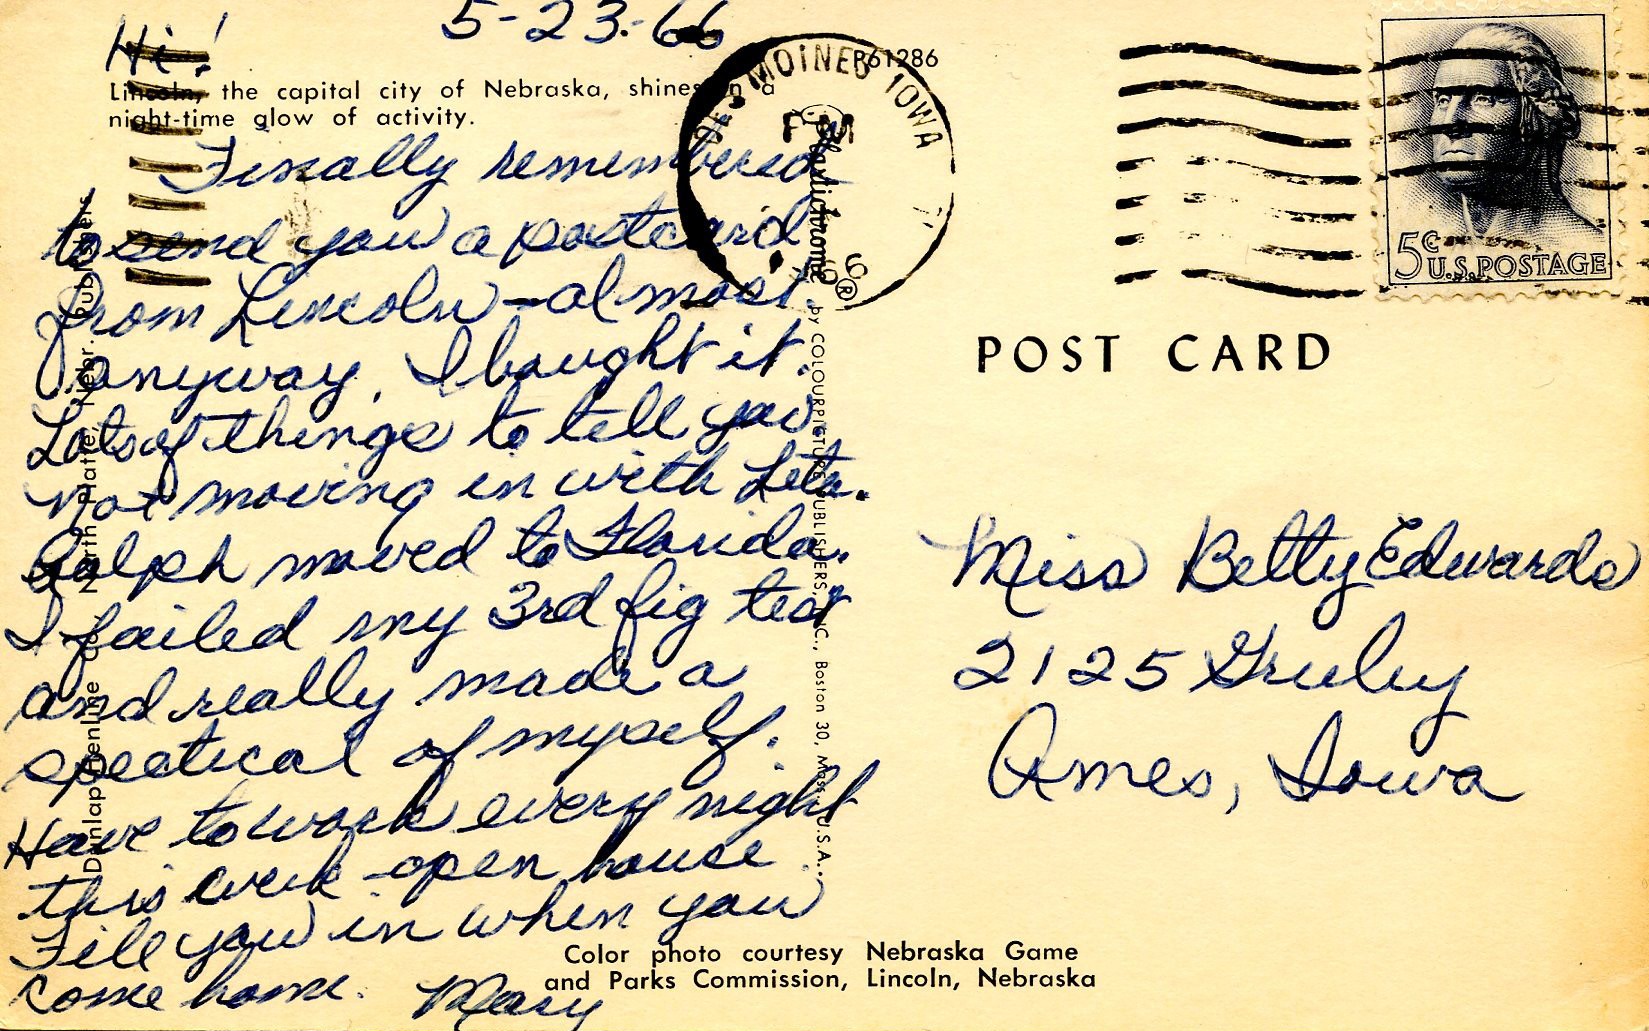 5-23-66
Hi!
Lincoln, the capital city of Nebraska, shines in a
night-time glow of activity.
Finally remembered
to send you a postcard
from Lincoln - almost.
anyway, I bought it.
Lots of things to tell you.
Not moving in with Leta.
Ralph moved to Florida.
I failed my 3rd fig test
and really made a
spectical of myself.
Have to work every night
this week - open house.
Fill you in when you
come home. Mary
Dunlap-Henline Co., North Platte, Nebr. Publishers
Plastichrome ® by COLOURPICTURE PUBLISHERS, INC., Boston 30, Mass., U.S.A.
P61286
DES MOINES IOWA
5¢
U.S. POSTAGE
POST CARD
Miss Betty Edwards
2125
Ames, Iowa
Color photo courtesy Nebraska Game
and Parks Commission, Lincoln, Nebraska